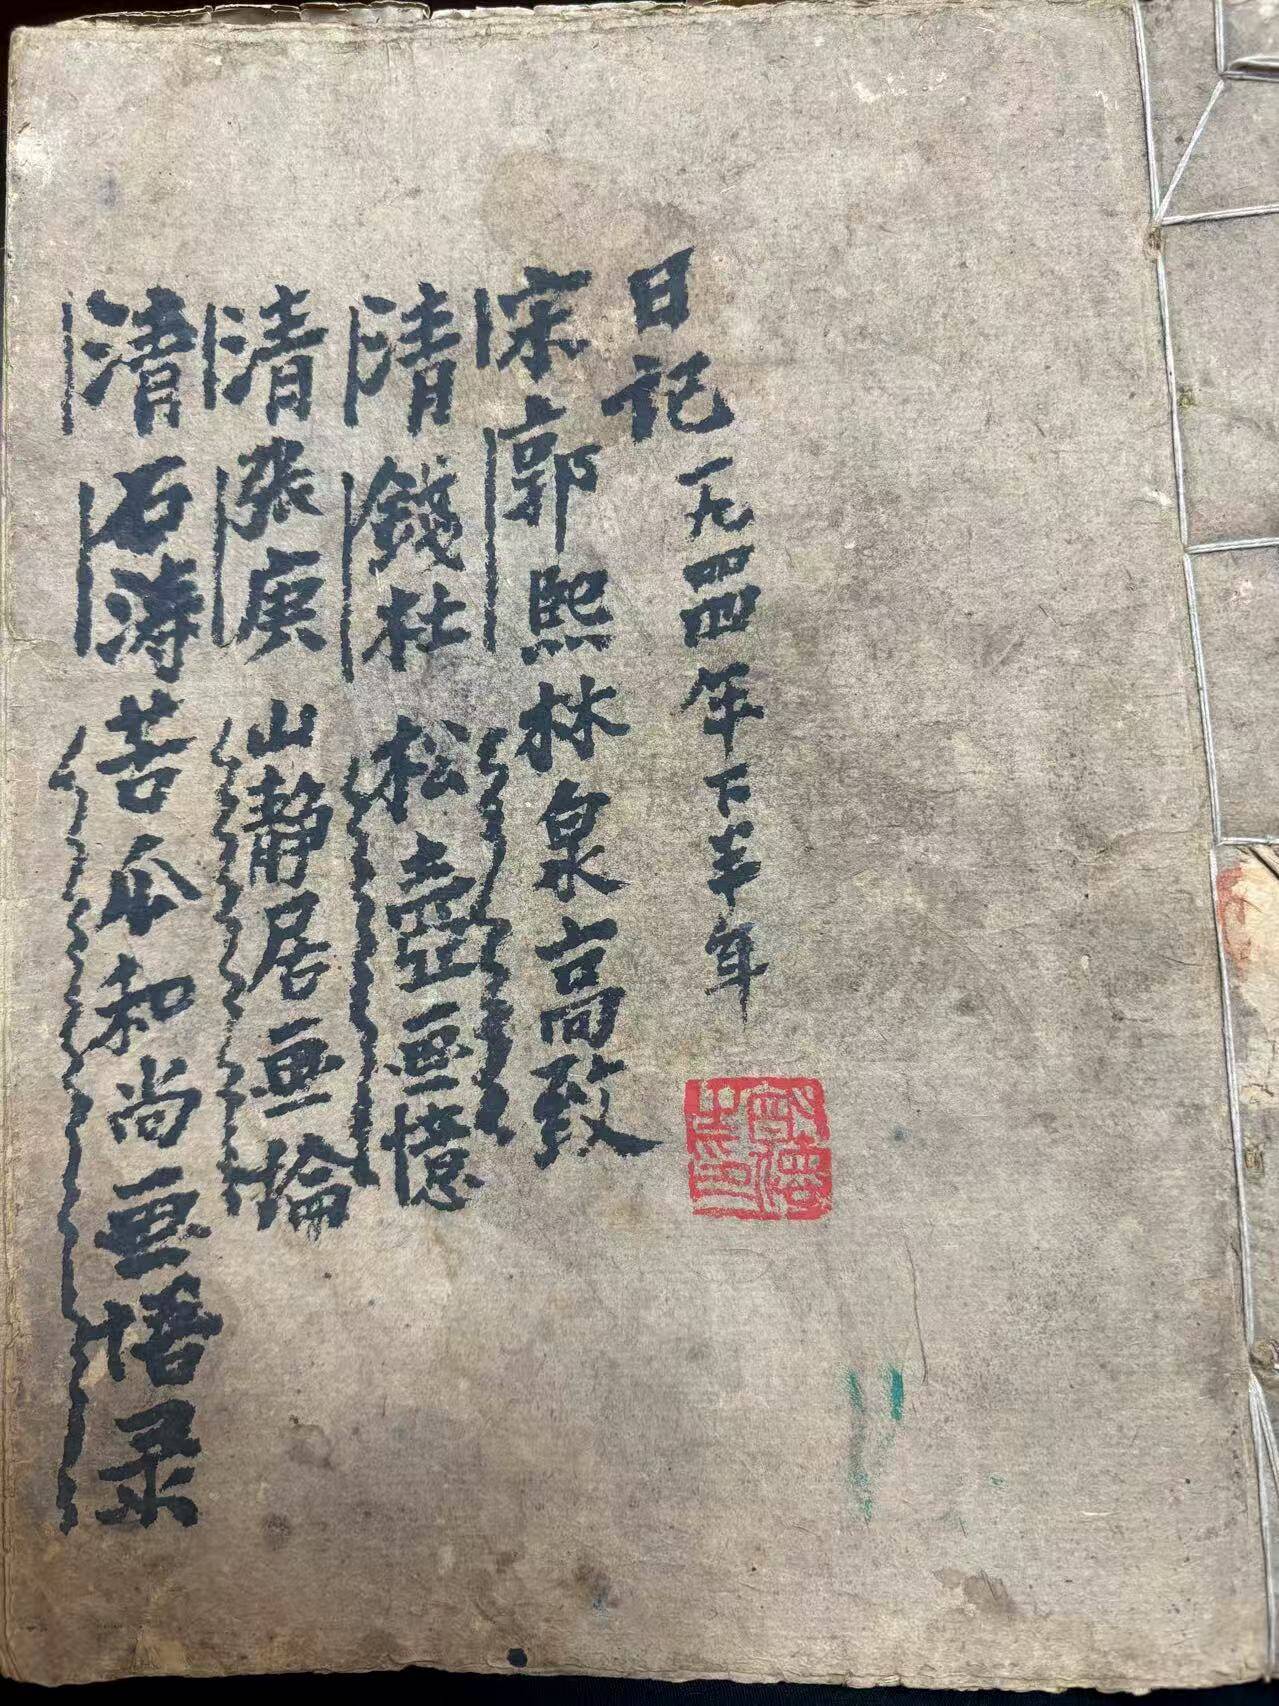 日记一九四四年下半年
宋郭熙林泉高致
清錢杜松壺画憶
清張庚山静居画掄
清石涛苦瓜和尚画悟录